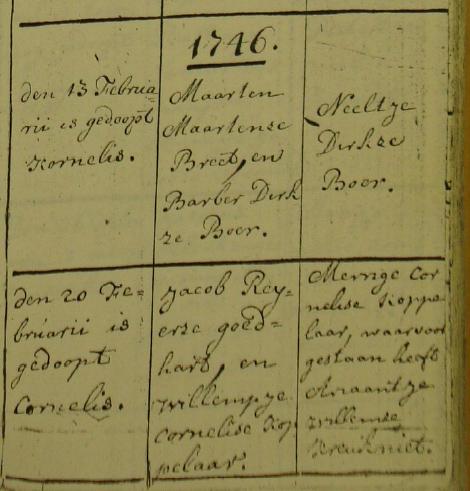 1746.
den 13 Februa-
rii is gedoopt
Kornelis.
Maarten
Maartensze
Breet, en
Barber Dirk
ze Boer.
Neeltze
Dirkze
Boer.
den 20 Fe=
bruarii is
gedoopt
Cornelis.
Jacob Rey=
erse goed=
hart, en
Willempze
Cornelise Kop
pelaar.
Merrige Cor
nelise Koppe
laar, waarvoor
gestaan heeft
Ariaantze
Willemse
Kreukniet.